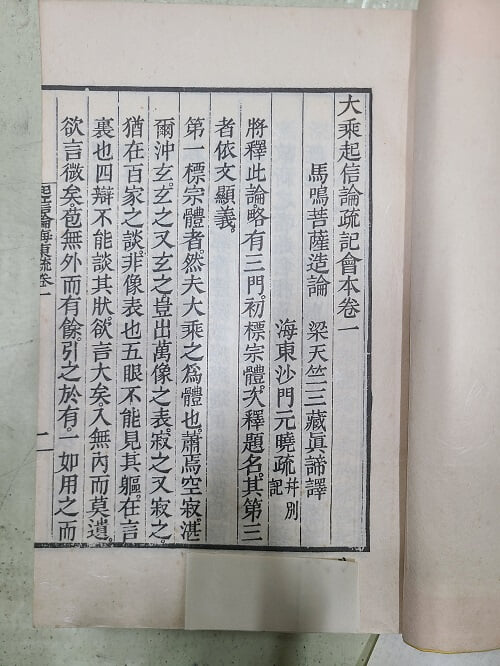 大乘起信論疏記會本卷一
馬鳴菩薩造論　梁天竺三藏眞諦譯
海東沙門元曉疏幷別記
將釋此論。略有三門。初標宗體。次釋題名。其第三
者依文顯義。
第一標宗體者。然夫大乘之爲體也。蕭焉空寂。湛
爾沖玄。玄之又玄之。豈出萬像之表。寂之又寂之。
猶在百家之談。非像表也五眼不能見其軀。在言
裏也四辯不能談其狀。欲言大矣入無內而莫遺。
欲言微矣苞無外而有餘。引之於有。一如用之而
起信論海東疏卷一
一